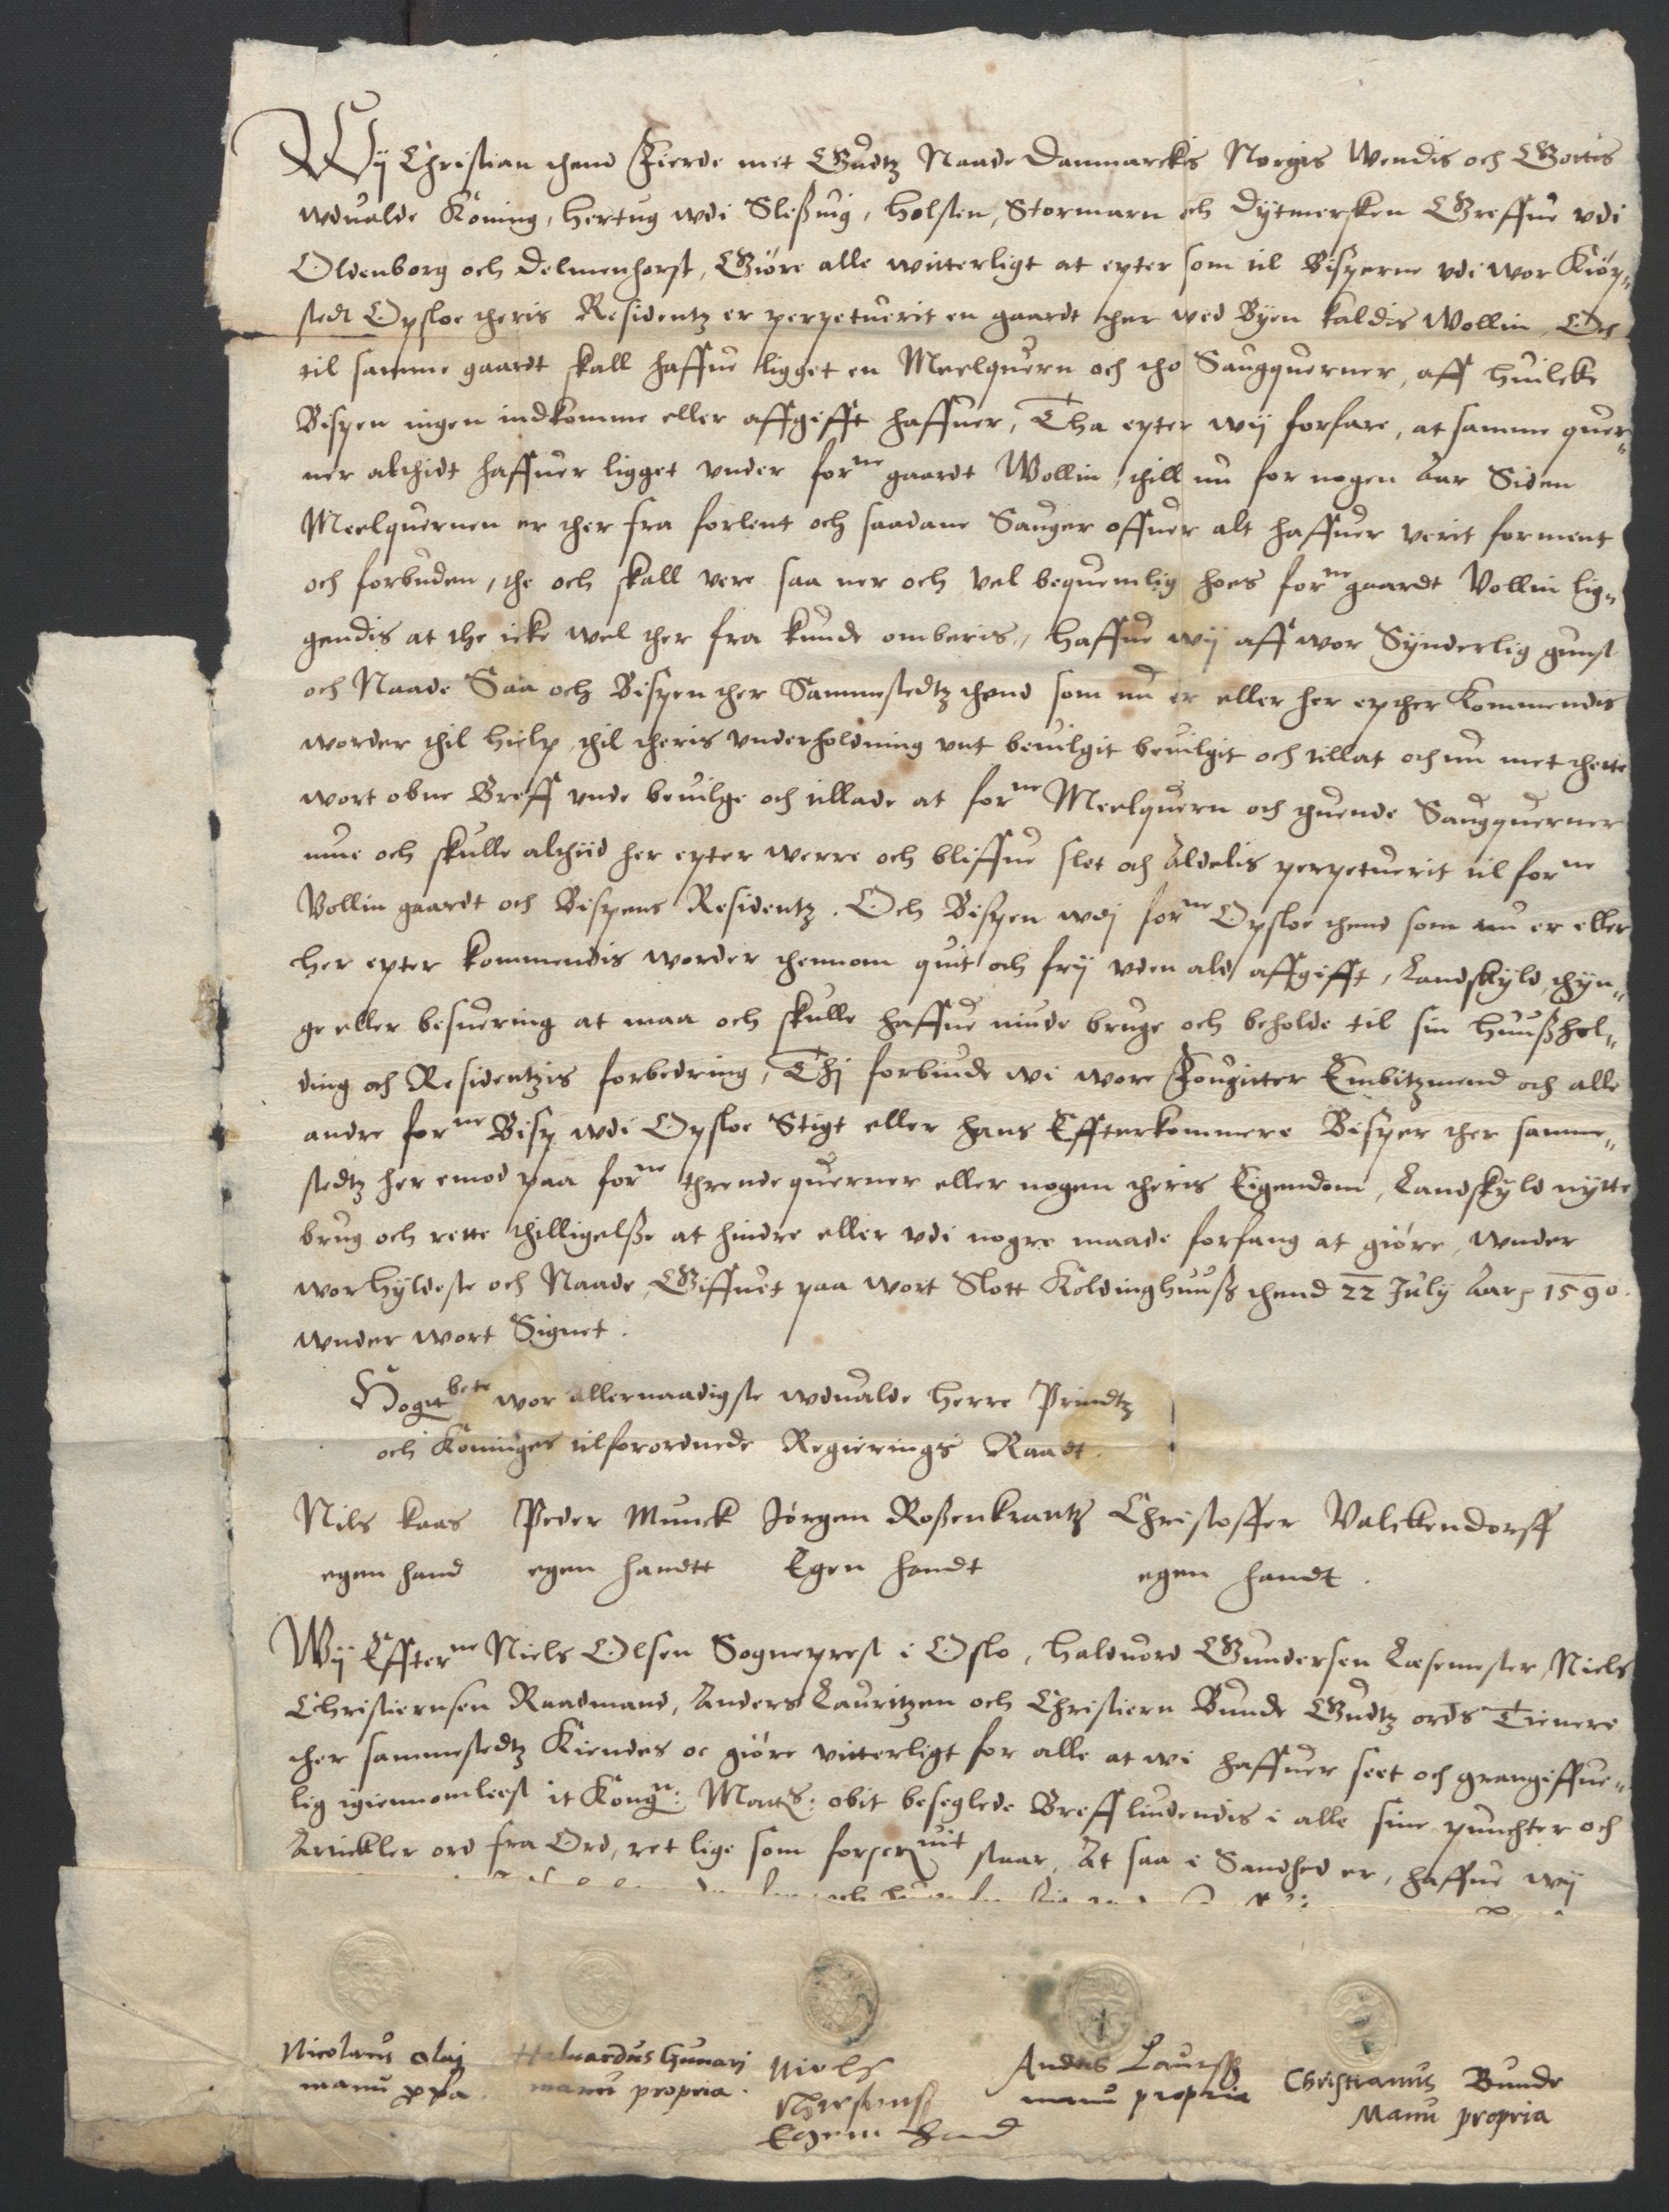 Wij Christian thend Fierde met Gudtz Naade Danmarckis Norgis Wendis och Gottis
wdualde Koning, Hertug wdi Sleßuig, Holsten, Stormarn och Dytmersken Greffue vdi
Oldenborg och Delmenhorst, Giøre alle witterligt at epter som til Bisperne vdi wor Kiøp„
stedt Opsloe theris Residentz er perpetuerit en gaardt ther wed Byen kaldis Wollin, Och
til samme gaardt skall haffue ligget en Meelquern och tho Saugquerner, aff huilcke
Bispen ingen indkomme eller affgifft haffuer, Tha epter wij forfare, at samme quer„
ner althidt haffuer ligget vnder forne gaardt Wollin, thill nu for nogen Aar Siden
Meelquernen er ther fra forlent och saadane Sauger offuer alt haffuer verit forment
och forbuden, the och skall vere saa ner och vel bequemlig hoes forne gaardt Vollin lig„
gendis at the icke wel ther fra kunde omberis, Haffue wij aff wor Synderlig gunst
och Naade Saa och Bispen ther Sammestedtz thend som nu er eller her epther Kommendis
worder thil hielp thil theris vnderholdning vnt beuilgit beuilgit och tillat och nu met thette
wort obne Breff vnde beuilge och tillade at forne Meelquern och thuende Saugquerner
mue och skulle althiid her epter werre och bliffue slet och Aldelis perpetuerit til forne
Vollin gaardt och Bispens Residentz. Och Bispen wdj forne Opsloe thend som nu er eller
her epter kommendis worder thennom quit och frij vden ald affgifft, Landskyld, thyn„
ge eller besuering at maa och skulle haffue niude bruge och beholde til sin Huußhol„
ding och Residentzis forbedring, Thj forbiude wi wore Fougitter Embitzmend och alle
andre forne Bisp wdi Opsloe Stigt eller hans Effterkommere Bisper ther samme„
stedtz her emod paa forne thrende querner eller nogen theris Eigendom, Landskyld nytte
brug och rette thilligelße at hindre eller vdi nogre maade forfang at giøre, wnder
wor Hyldeste och Naade, Giffuet paa wort Slott Koldinghuuß thend 22 Julij Aar 1590.
wnder wort Signet.
Høgstbete wor allernaadigste wdualde Herre Prindtz
och Koninges tilforordnede Regierings Raadt.
Nils Kaas Peder Munck Jørgen Roßenkrantz Christoffer Valckendorff
egen hand egen handtt Egen handt egen handt.
Wij Effterne Niels Olsen Sogneprest i Oslo, Halduord Gundersen Læsemester, Niels
Christiernsen Raadmand, Anders Lauritzen och Christiern Bunde Gudtz ords Tienere
ther sammestedtz Kiendes oc giøre vitterligt for alle at wi haffuer seet och grangiffue„
lig igiennomleest it Kongn: Matts: obit beseglede Breff liudendis i alle sine puncter och
Artickler ord fra Ord, ret lige som forscruit staar, At saa i Sandhed er, haffue wij
Nicolaus Olaj Haluardus Gunarj Niels Anders Laurssß Christianus Bunde
manu ppa. manu propria. Chrestensß manu propria Manu propria
Egenn Hand